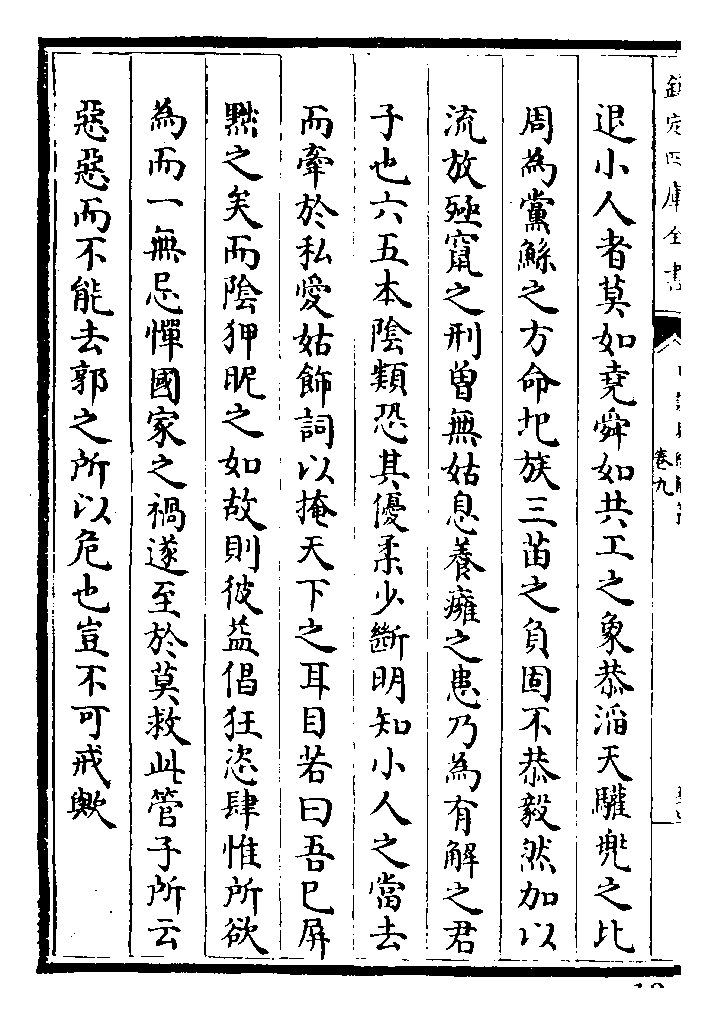 欽定四庫全書
卷九
退小人者莫如堯舜如共工之象恭滔天驩兜之比
周為黨鯀之方命圮族三苗之負固不恭毅然加以
流放殛竄之刑曽無姑息養癰之患乃為有解之君
子也六五本陰類恐其優柔少斷明知小人之當去
而牽於私愛姑飾詞以掩天下之耳目若曰吾已屏
黜之矣而陰狎昵之如故則彼益倡狂恣肆惟所欲
為而一無忌憚國家之禍遂至於莫救此管子所云
惡惡而不能去郭之所以危也豈不可戒歟